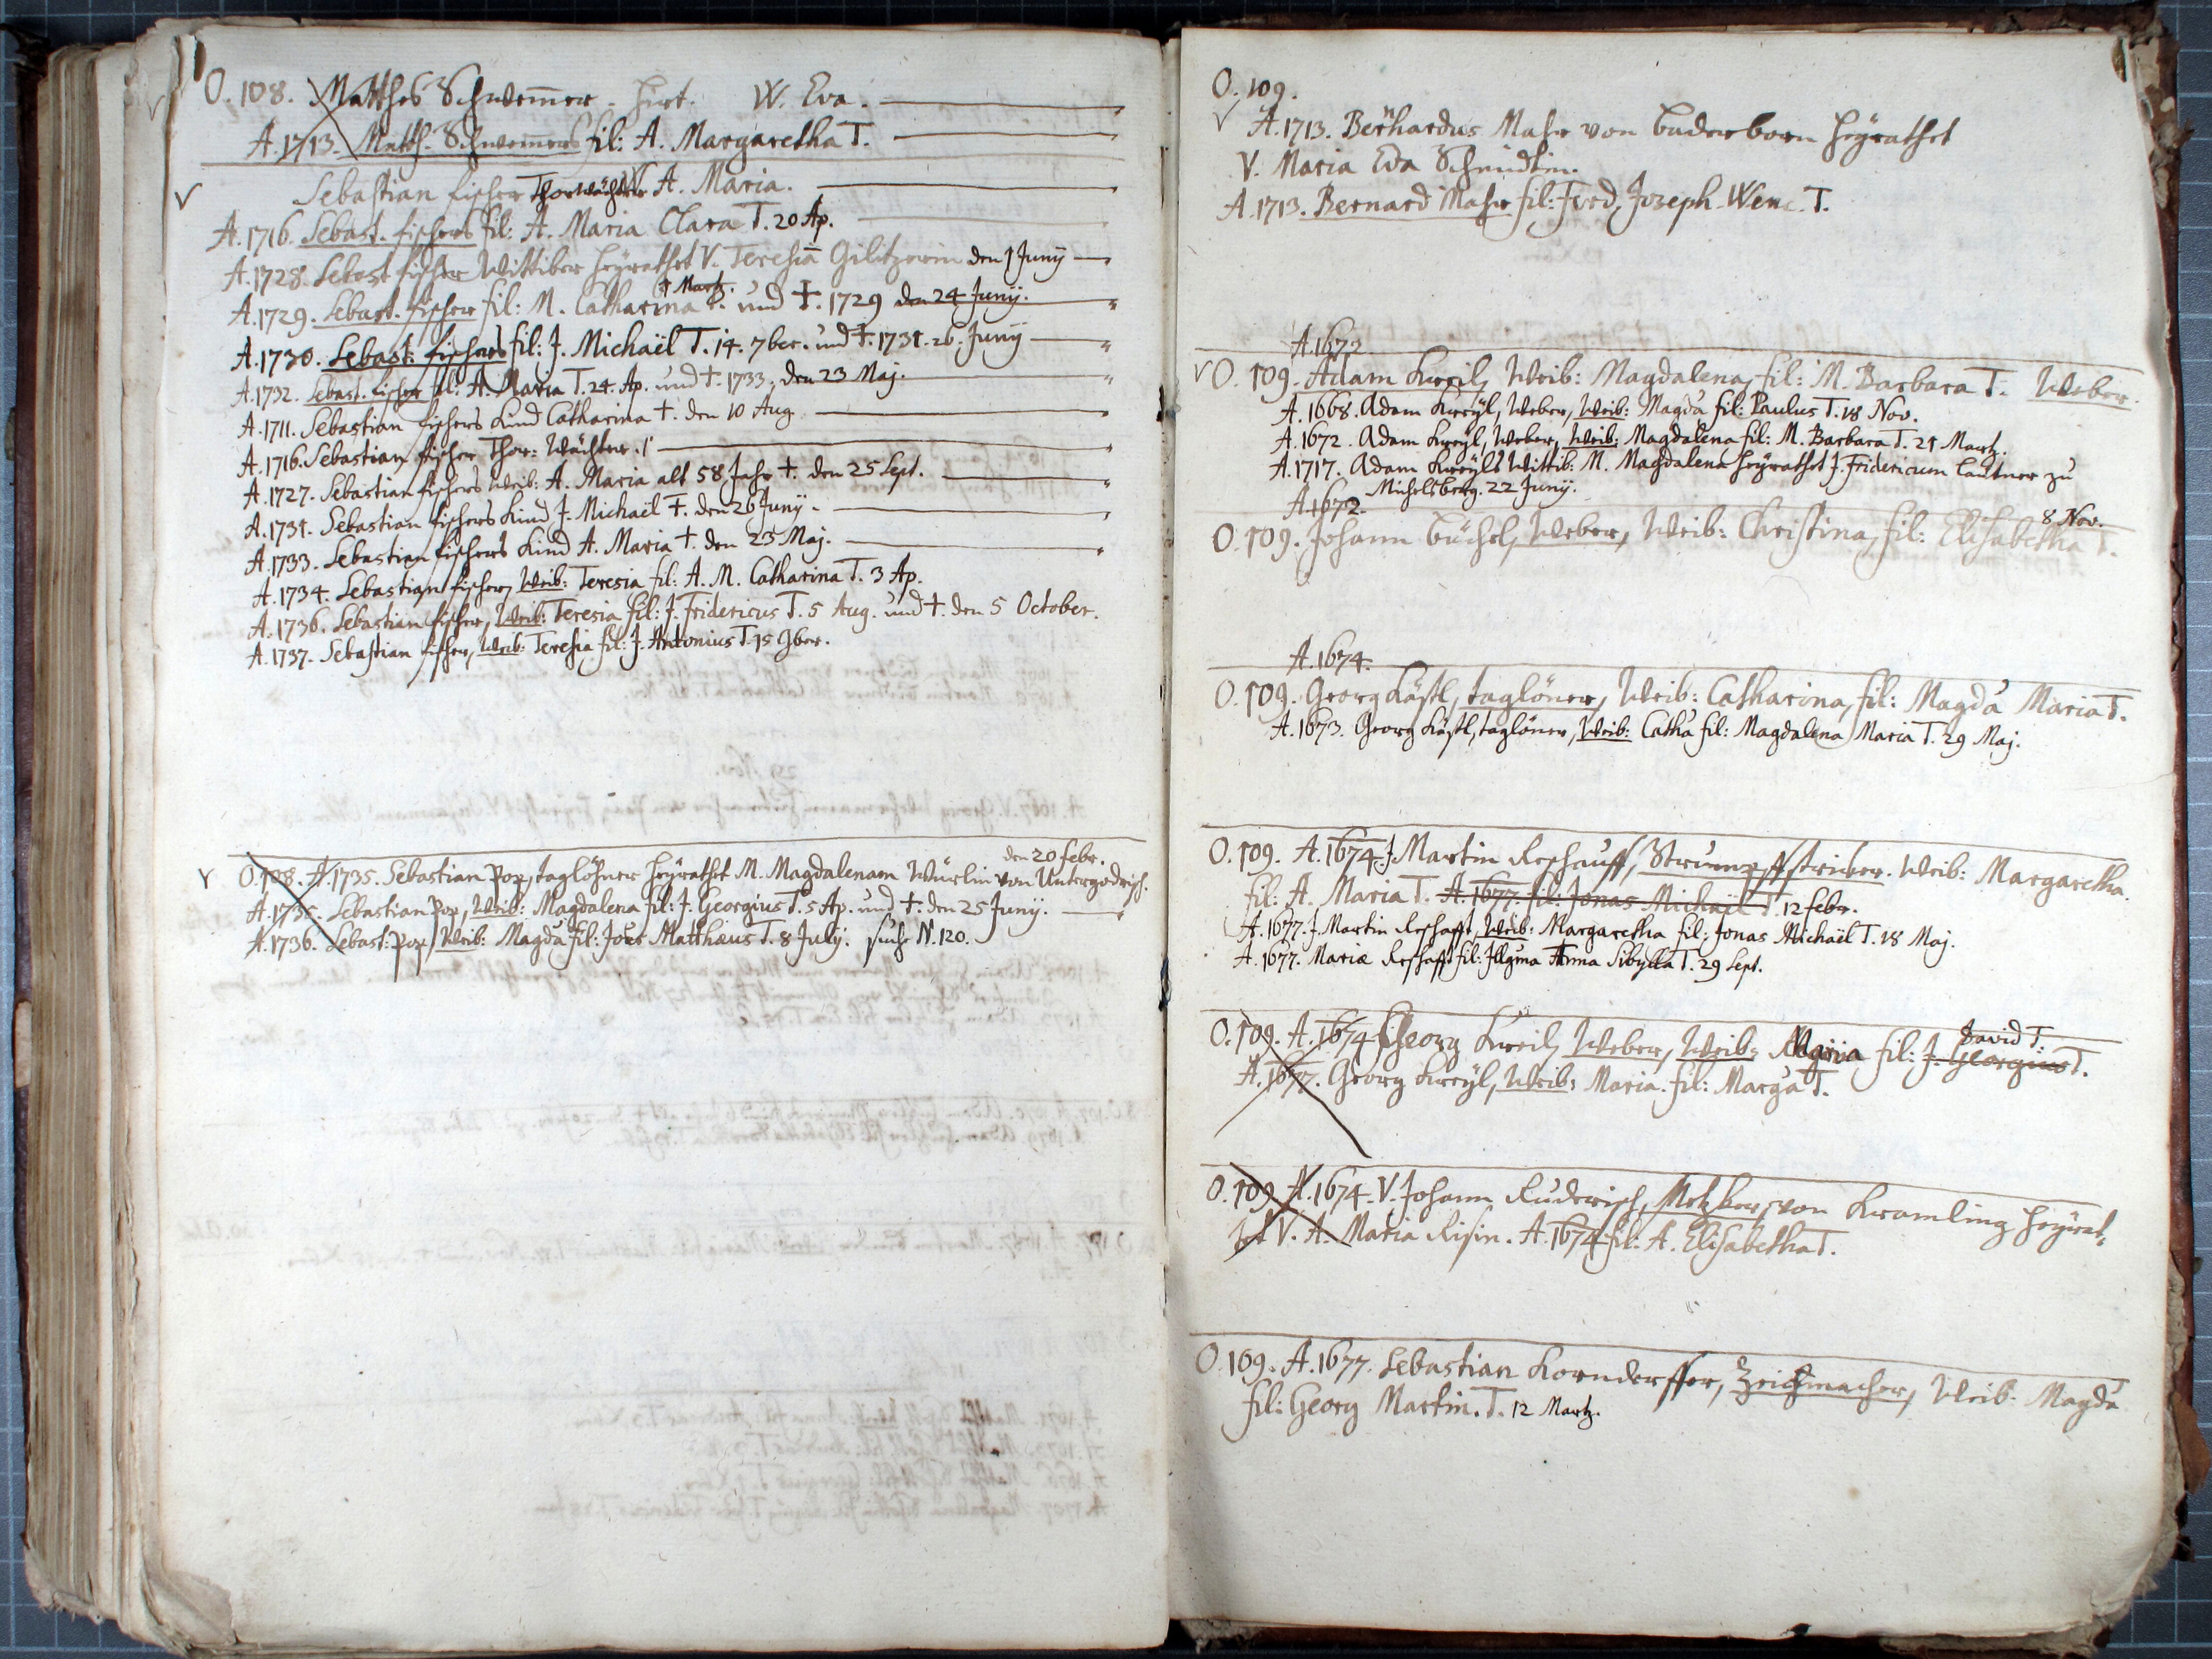 O. 108. Matthes Schwem̄er. Hirt. W. Eva.
A. 1713. Matth. Schwem̄ers fil: A. Margaretha T.
Sebastian fischer Thorwächter W. A. Maria.
A. 1716. Sebast. fischers fil: A. Maria Clara T. 20 Ap.
A. 1728. Sebast fischer Wittiber heÿrathet V. Teresia Gilitzerin den 1 Junÿ
A. 1729. Sebast. fischer fil: M. Catharina T. 1 Mart. und †. 1729 den 24 Junÿ.
A. 1730. Sebast: fischers fil: J. Michaël T. 14. 7ber. und †. 1731. 26. Junÿ
A. 1732. Sebast. fischer fil: A. Maria T. 24. Ap. und †. 1733. den 23 Maj.
A. 1711. Sebastian fischers Kind Catharina †. den 10 Aug.
A. 1716. Sebastian fischer Thor: Wächter.
A. 1727. Sebastian fischers weib: A. Maria alt 58 Jahr †. den 25 Sept.
A. 1731. Sebastian fischers Kind J. Michaël †. den 26 Junÿ.
A. 1733. Sebastian fischers Kind A. Maria †. den 23 Maj.
A. 1734. Sebastian fischer, Weib: Teresia fil: A. M. Catharina T. 3 Ap.
A. 1736. Sebastian fischer, Weib: Teresia fil: J. Fridericus T. 5 Aug. und †. den 5 October.
A. 1737. Sebastian fischer, Weib: Teresia fil: J. Antonius T. 15 9ber.
den 20 febr.
O. 108. A. 1735. Sebastian Pop, taglöhner heÿrathet M. Magdalenam Würlin von Untergodrisch.
A. 1735. Sebastian Pop, Weib: Magdalena fil: J. Georgius T. 5 Ap. und †. den 25 Junÿ.
A. 1736. Sebast: Pop, Weib: Magda fil: Joes Matthæus T. 8 Julÿ. suche N. 120.
O. 109.
A. 1713. Bernhardus Mahr von Baderborn heÿrathet
V. Maria Eva Schmidtin.
A. 1713. Bernard Mahr fil: Ferd. Joseph. Wenc. T.
A. 1672
O. 109. Adam Kreil, Weib: Magdalena, fil: M. Barbara T. Weber.
A. 1668. Adam Kreÿl, Weber, Weib: Magda fil: Paulus T. 18 Nov.
A. 1672. Adam Kreÿl, Weber, Weib: Magdalena fil: M. Barbara T. 21 Martz.
A. 1717. Adam Kreÿls Wittib: M. Magdalena heÿrathet J. Fridericum Lautner zu
Michelsberg. 22 Junÿ.
A. 1672.
8 Nov.
O. 109. Johann Büchel, Weber, Weib: Christina, fil: Elisabetha T.
A. 1674.
O. 109. Georg Kästl, taglöner, Weib: Catharina, fil: Magda Maria T.
A. 1673. Georg Kästl, taglöner, Weib: Catha fil: Magdalena Maria T. 29 Maj.
O. 109. A. 1674. J. Martin Reshauff, Strumpffstricker. Weib: Margaretha.
fil: A. Maria T. A. 1677. fil: Jonas Michaël T. 12 febr.
A. 1677. J. Martin Reshafft, Weib: Margaretha fil: Jonas Michaël T. 18 Maj.
A. 1677. Mariæ Reshafft fil: Illgma Anna Sibylla T. 29 Sept.
David T.
O. 109. A. 1674 Georg Kreil, Weber, Weib: Maria fil: J. Georgius T.
A. 1677. Georg Kreÿl, Weib: Maria. fil: Marga T.
O. 109 A. 1674. V. Johann Ruderisch, Metzker, von Kramling heÿrat=
het V. A. Maria Risin. A. 1674 fil: A. Elisabetha T.
O. 109. A. 1677. Sebastian Korndorffer, Zeichmacher, Weib: Magda
fil: Georg Martin. T. 12 Martz.